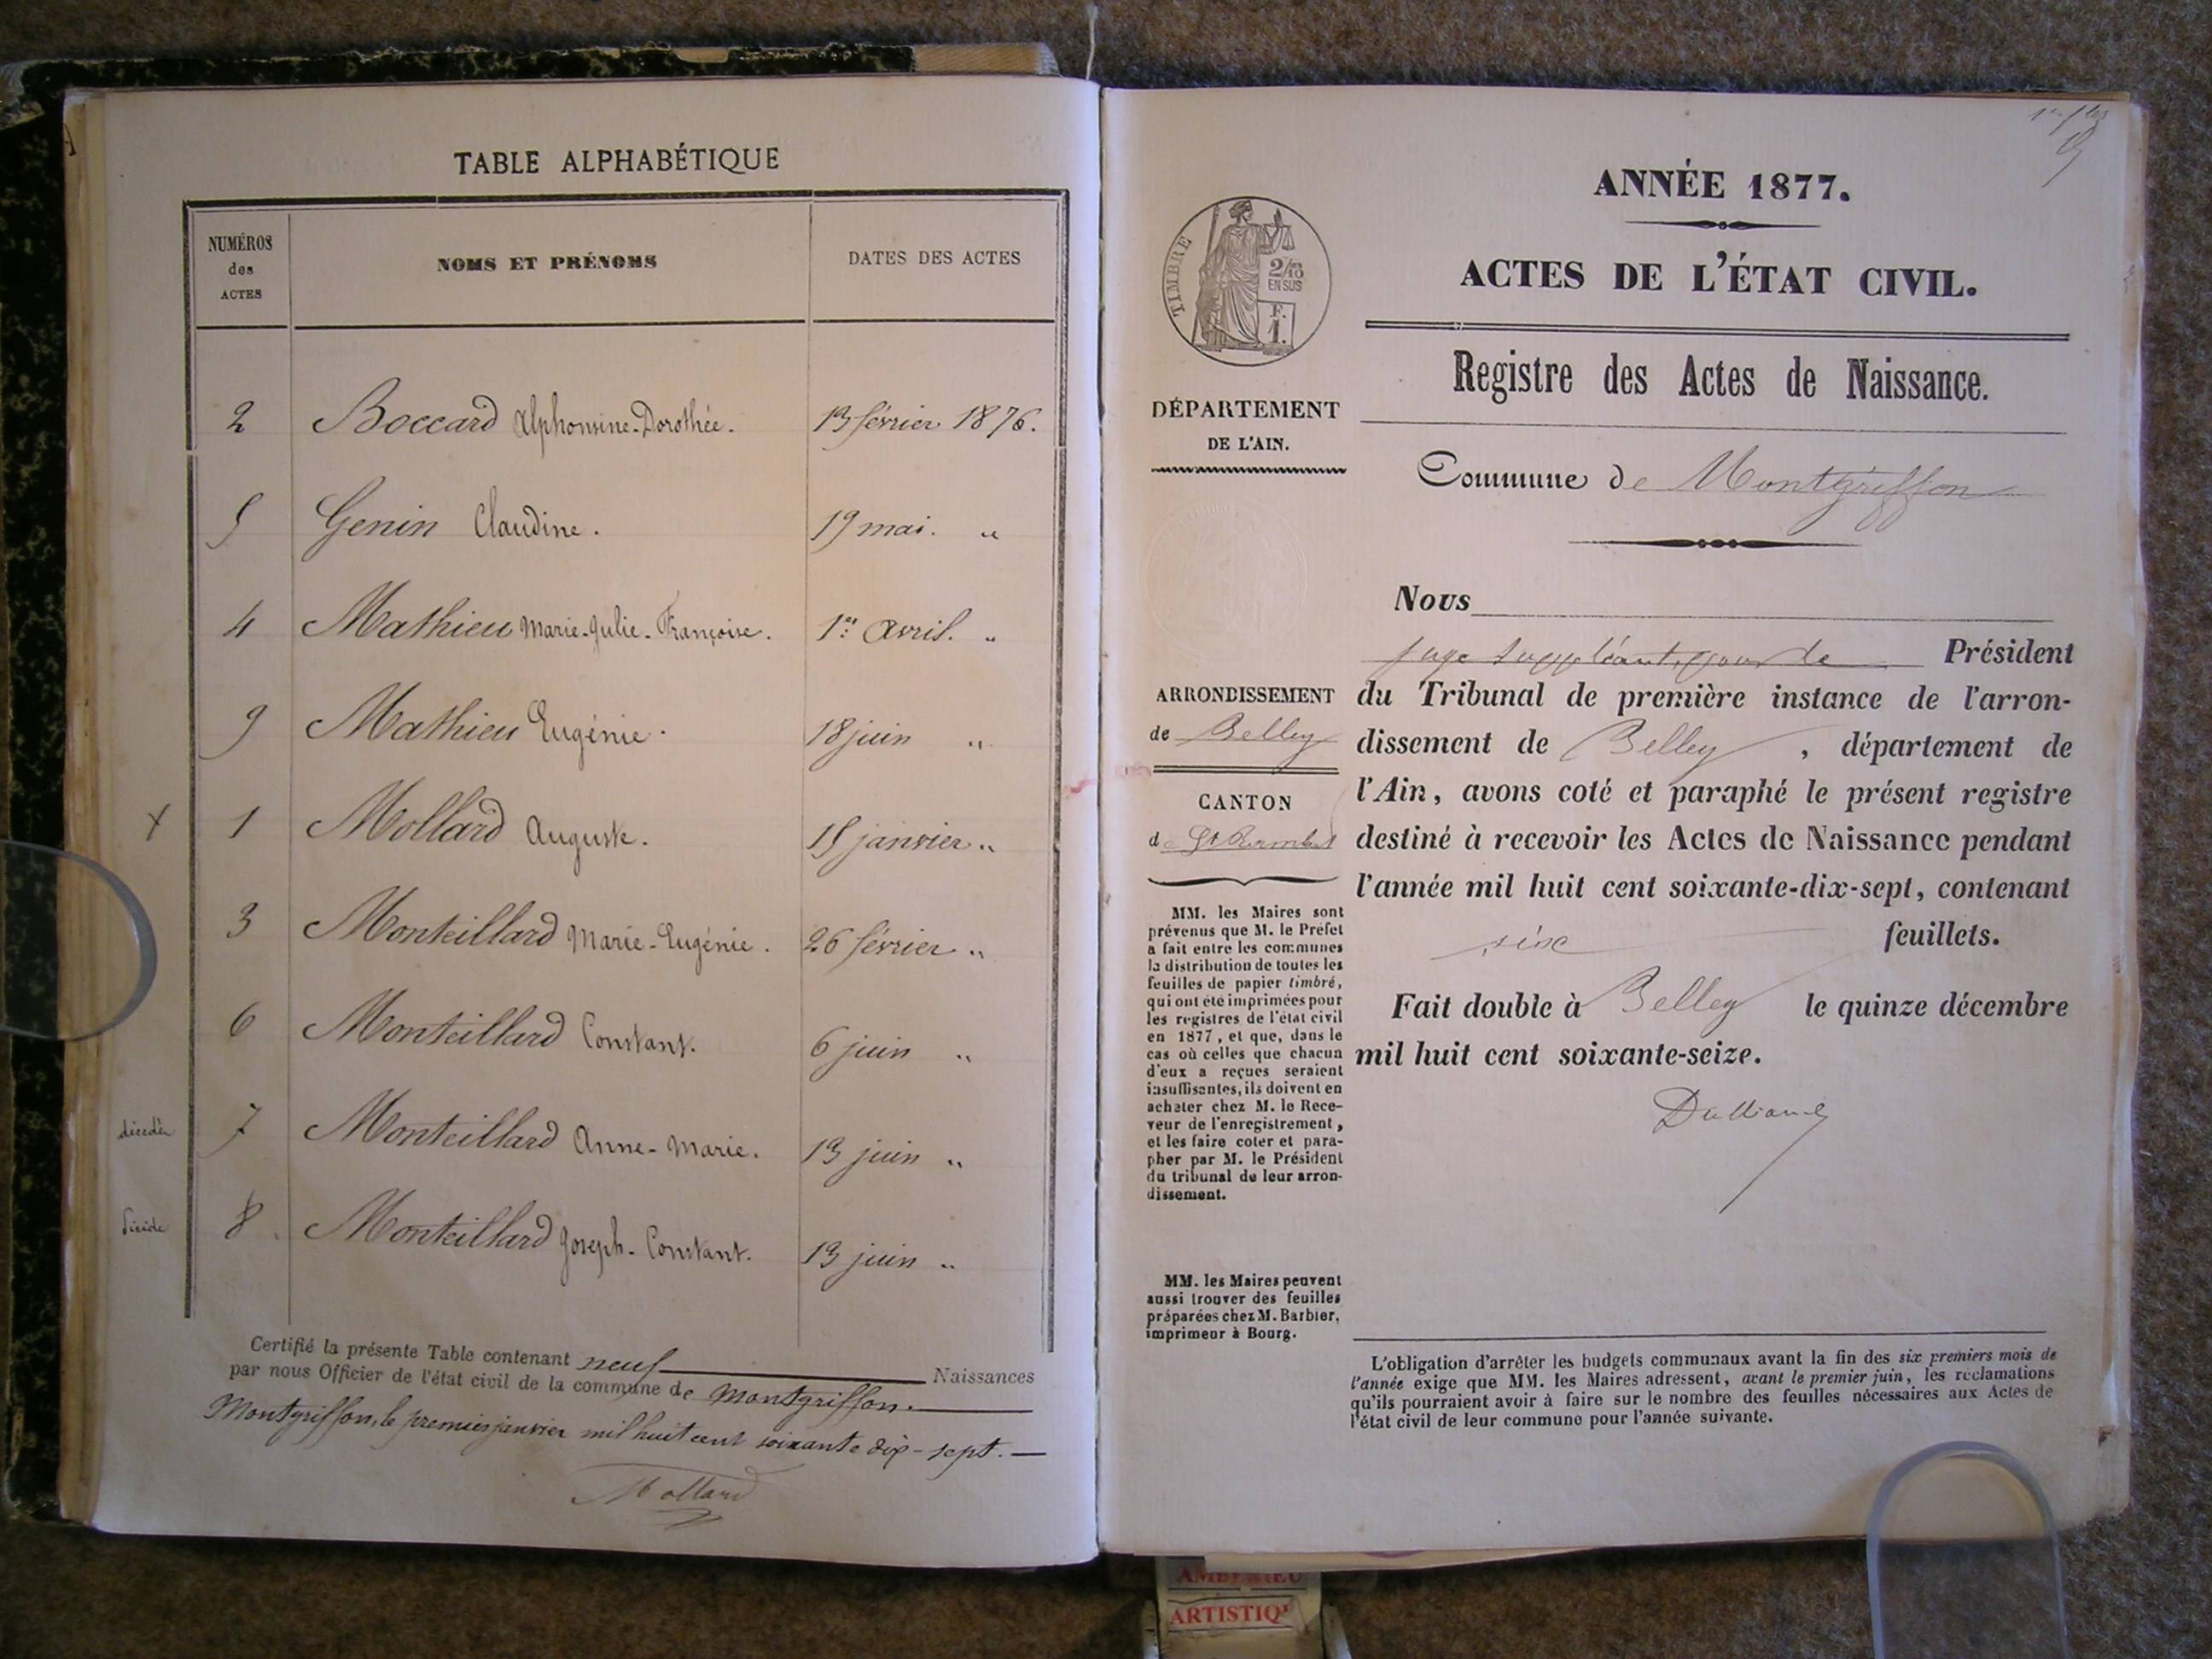 TABLE ALPHABÉTIQUE
NUMÉROS des ACTES
NOMS ET PRÉNOMS
DATES DES ACTES
2 Boccard Alphonsine-Dorothée. 13 février 1876.
5 Genin Claudine. 19 mai. "
4 Mathieu Marie-Julie-Françoise. 1er avril. "
9 Mathieu Eugénie. 18 juin "
X 1 Mollard Auguste. 15 janvier "
3 Monteillard Marie-Eugénie. 26 février "
6 Monteillard Constant. 6 juin "
décédée 7 Monteillard Anne-Marie. 13 juin "
8 Monteillard Joseph-Constant. 13 juin "
Certifié la présente Table contenant neuf Naissances
par nous Officier de l'état civil de la commune de Montgriffon.
Montgriffon, le premier janvier mil huit cent soixante dix-sept.
Mollard
ANNÉE 1877.
ACTES DE L'ÉTAT CIVIL.
Registre des Actes de Naissance.
TIMBRE
2/10 EN SUS
F. 1.
DÉPARTEMENT
DE L'AIN.
Commune de Montgriffon
ARRONDISSEMENT
de Belley
CANTON
de St Rambert
MM. les Maires sont
prévenus que M. le Préfet
a fait entre les communes
la distribution de toutes les
feuilles de papier timbré,
qui ont été imprimées pour
les registres de l'état civil
en 1877, et que, dans le
cas où celles que chacun
d'eux a reçues seraient
insuffisantes, ils doivent en
acheter chez M. le Rece-
veur de l'enregistrement,
et les faire coter et para-
pher par M. le Président
du tribunal de leur arron-
dissement.
MM. les Maires peuvent
aussi trouver des feuilles
préparées chez M. Barbier,
imprimeur à Bourg.
Nous
juge suppléant, pour le Président
du Tribunal de première instance de l'arron-
dissement de Belley, département de
l'Ain, avons coté et paraphé le présent registre
destiné à recevoir les Actes de Naissance pendant
l'année mil huit cent soixante-dix-sept, contenant
six feuillets.
Fait double à Belley le quinze décembre
mil huit cent soixante-seize.
L'obligation d'arrêter les budgets communaux avant la fin des six premiers mois de
l'année exige que MM. les Maires adressent, avant le premier juin, les réclamations
qu'ils pourraient avoir à faire sur le nombre des feuilles nécessaires aux Actes de
l'état civil de leur commune pour l'année suivante.
ARTISTIQ